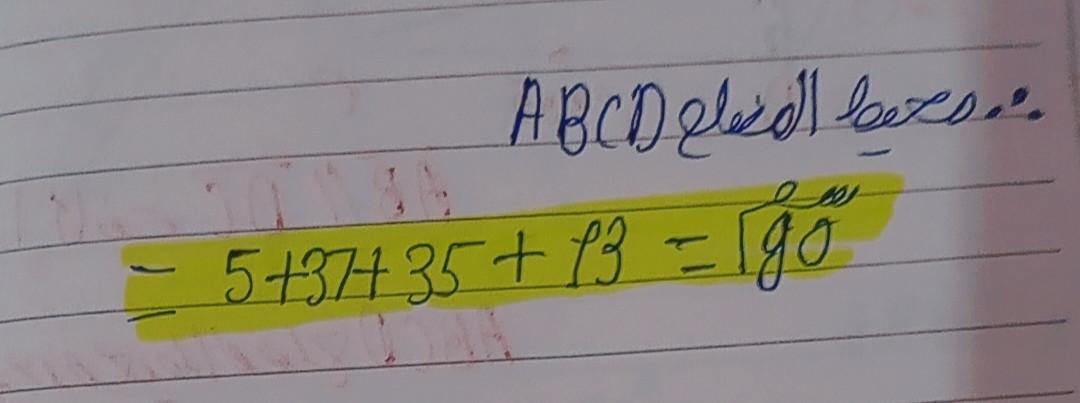 ∴ محيط الشكل ABCD
= 5+37+35+13 = 90 سم